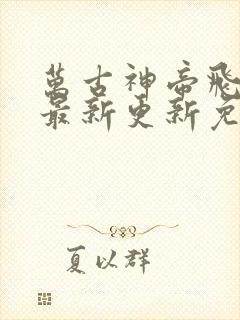 萬古神帝飛
最新更新免
夏以群